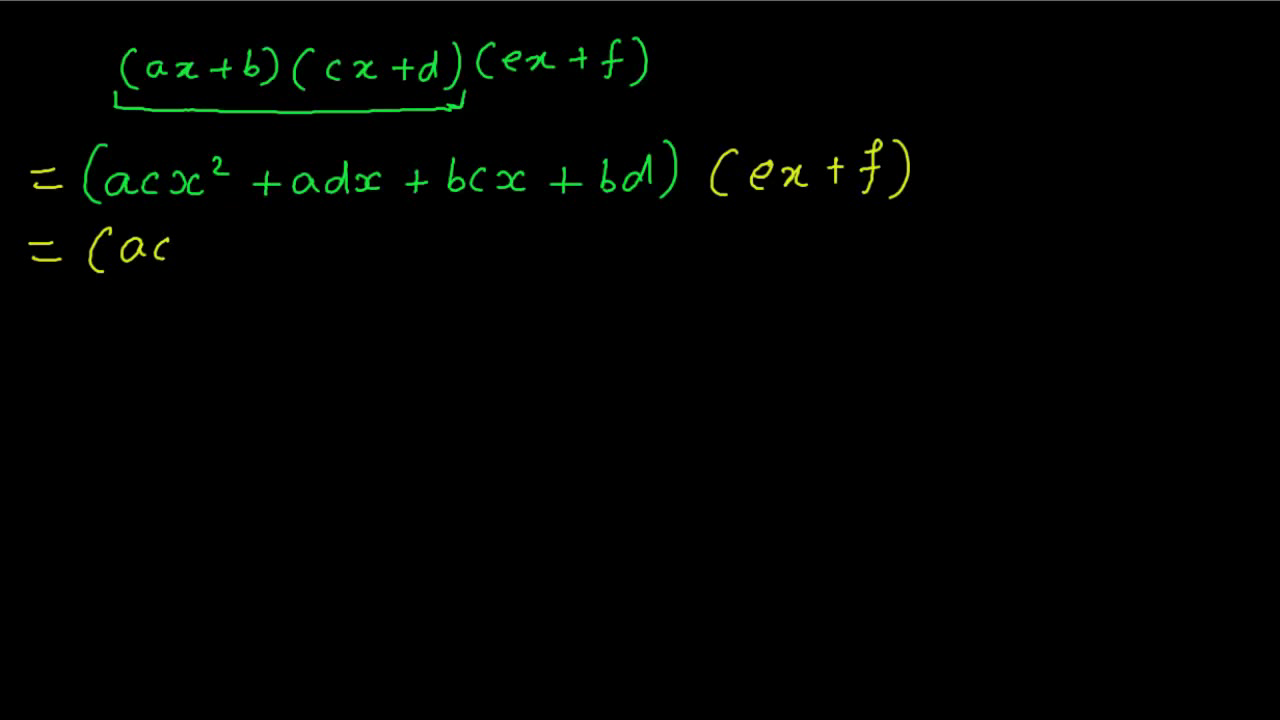 (ax+b)(cx+d)(ex+f)
= (acx² + adx + bcx + bd) (ex+f)
= (ac